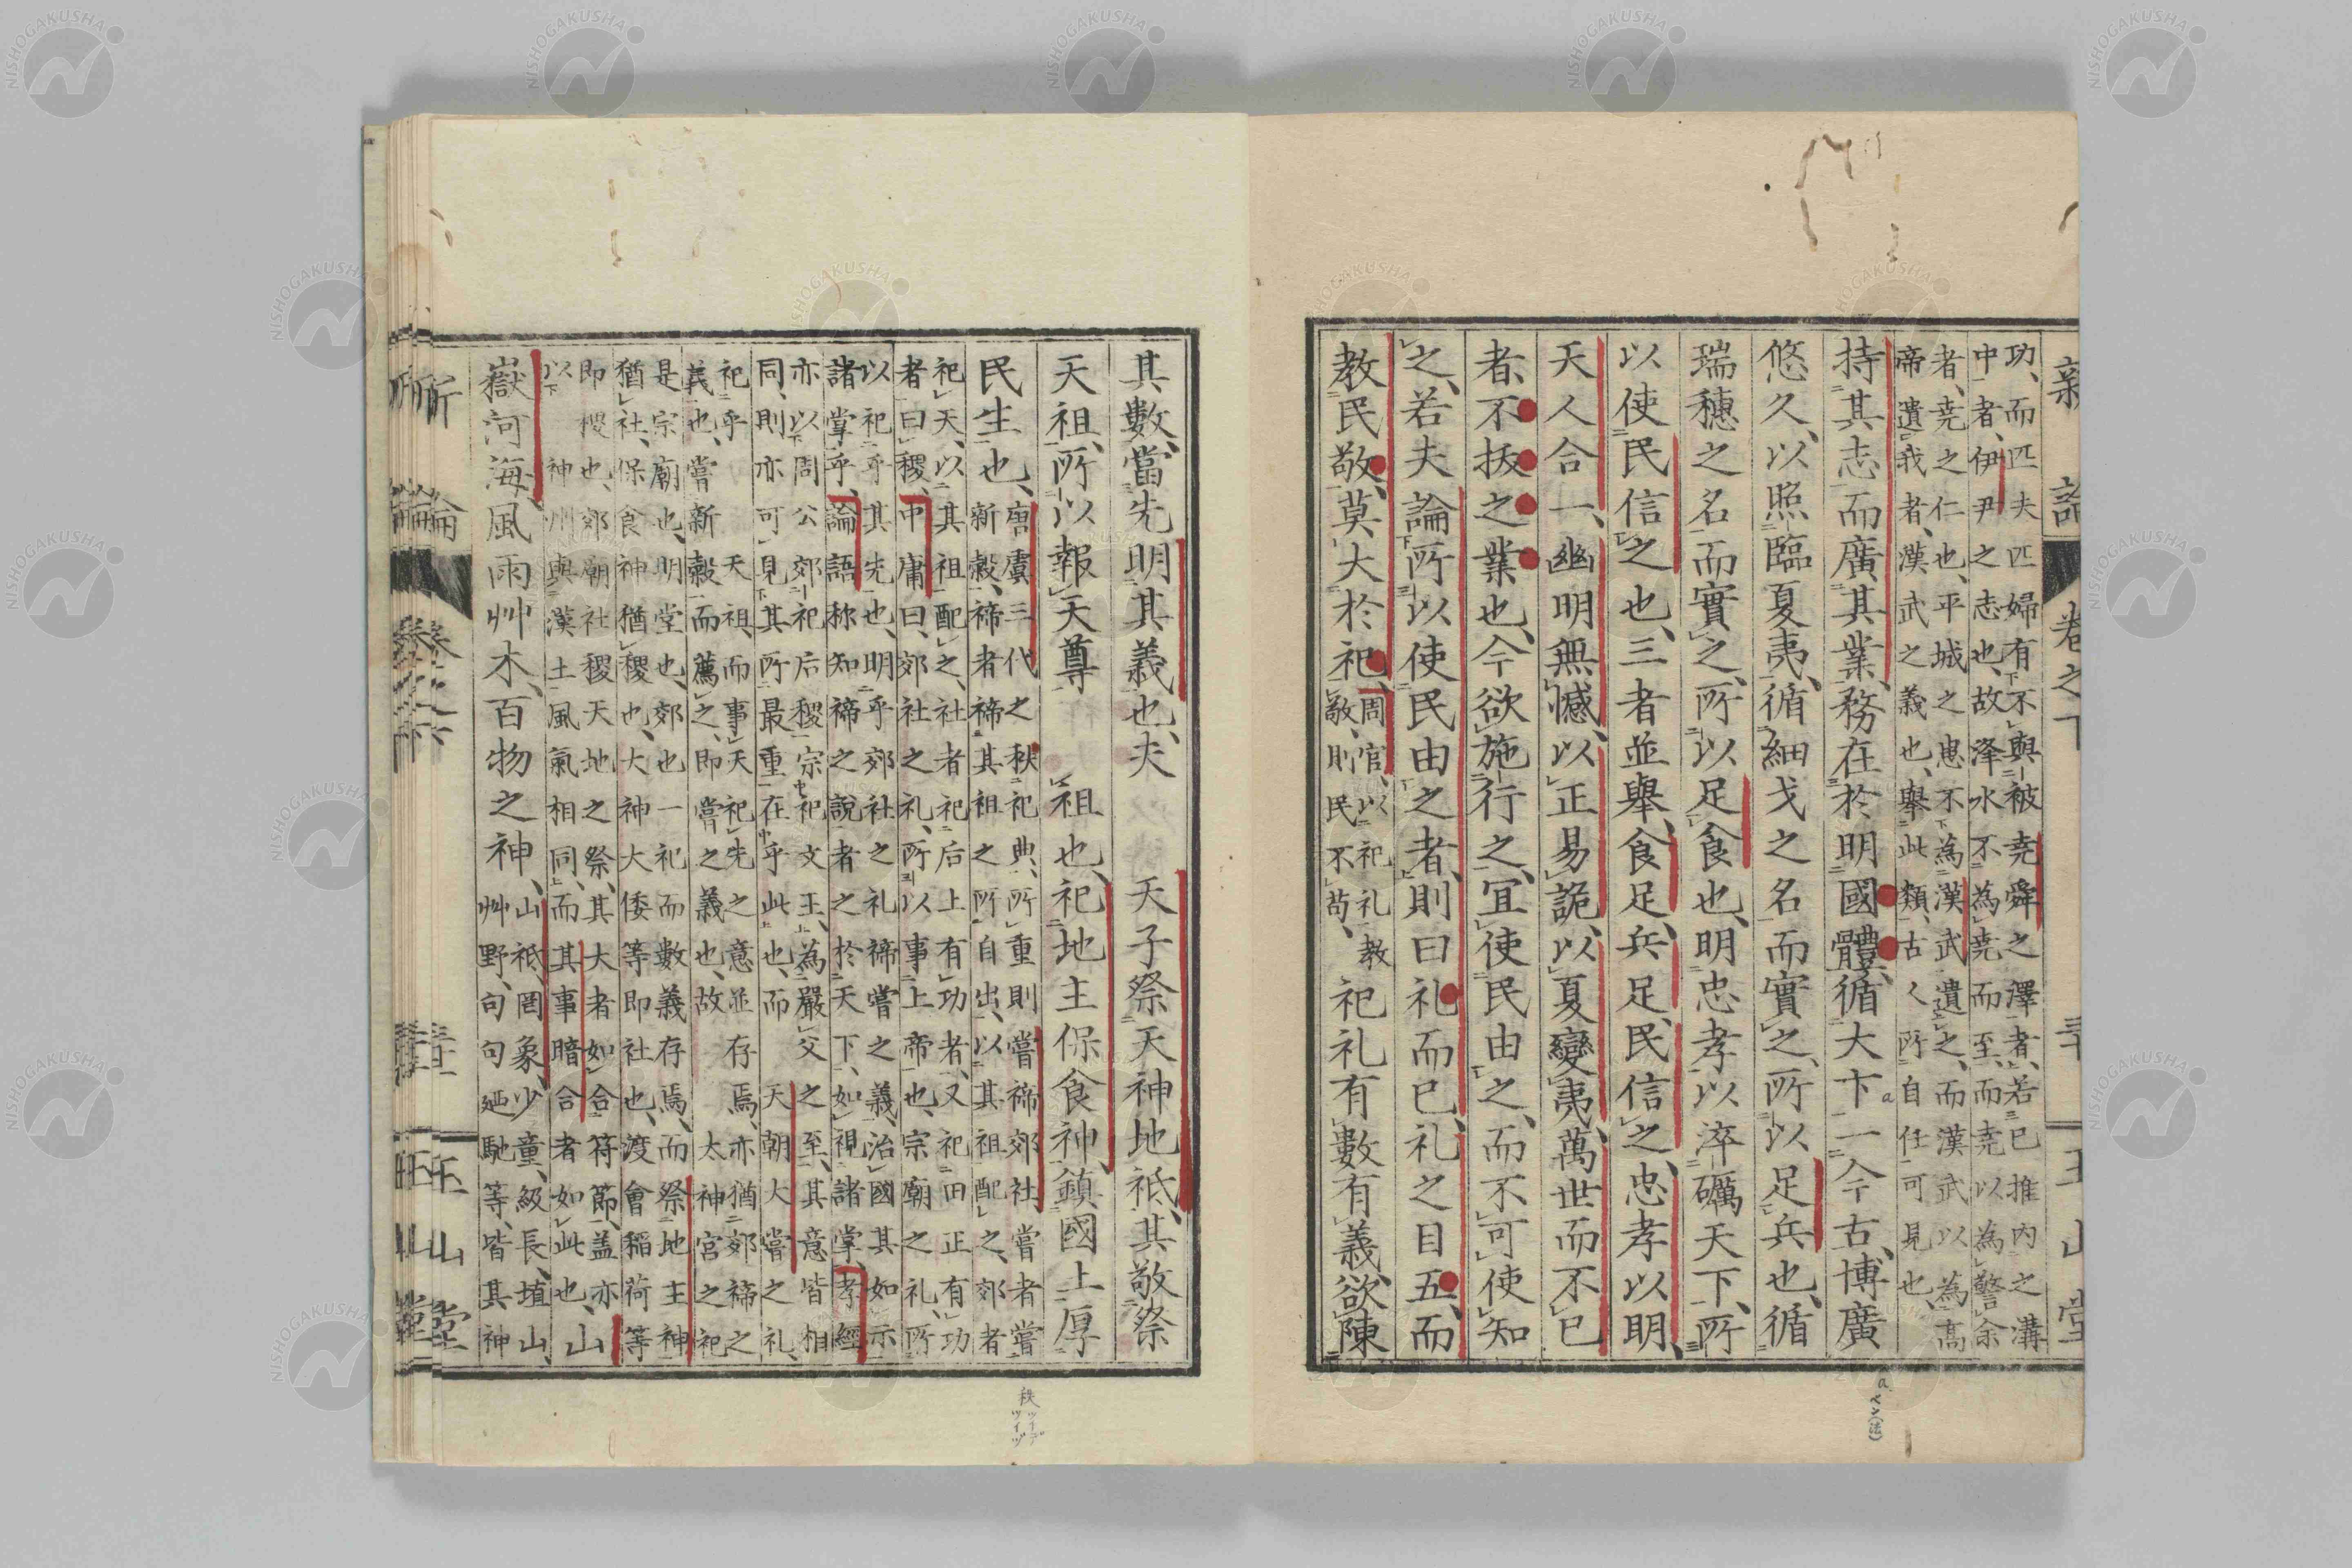 新論 卷之下 三十 玉山堂
功、而匹夫匹婦有不與被堯舜之澤者、若已推内之溝
中者、伊尹之志也、故洚水不為堯而至、而堯以為警余
者、堯之仁也、平城之恵不為漢武遺之、而漢武以為高
帝遺我者、漢武之義也、舉此類、古人所自任可見也、
持其志而廣其業、務在於明國體、循大卞一今古、博廣
悠久、以照臨夏夷、循細戈之名而實之、所以足兵也、循
瑞穗之名而實之、所以足食也、明忠孝以淬礪天下、所
以使民信之也、三者並舉、食足、兵足、民信之、忠孝以明、
天人合一、幽明無憾、以正易詭、以夏變夷、萬世而不已
者、不拔之業也、今欲施行之、宜使民由之、而不可使知
之、若夫論所以使民由之者、則曰礼而已、礼之目五、而
教民敬、莫大於祀、周官、以祀礼教敬、則民不苟、祀礼有數有義、欲陳
a ベン(法)
其數、當先明其義也、夫 天子祭天神地祇、其敬祭
天祖、所以報天尊 祖也、祀地主保食神、鎮國土厚
民生也、唐虞三代之秩祀典、所重則嘗禘郊社、嘗者嘗
新穀、禘者禘其祖之所自出、以其祖配之、郊者
祀天、以其祖配之、社者祀后土有功者、又祀田正有功
者曰稷、中庸曰、郊社之礼、所以事上帝也、宗廟之礼、所
以祀乎其先也、明乎郊社之礼禘嘗之義、治國其如示
諸掌乎、論語称知禘之説者之於天下、如視諸掌、孝經
亦以周公郊祀后稷宗祀文王、為嚴父之至、其意皆相
同、則亦可見其所最重在乎此也、而 天朝大嘗之礼、
祀乎 天祖、而事天祀先之意並存焉、亦猶郊禘之
義也、嘗新穀而薦之、即嘗之義也、故 太神宮之祀
是宗廟也、明堂也、郊也一祀而數義存焉、而祭地主神
猶社、保食神猶稷也、大神大倭等即社也、渡會稲荷等
即稷也、郊廟社稷天地之祭、其大者如合符節、盖亦
以下 神州與漢土風氣相同、而其事暗合者如此也、山
嶽河海風雨艸木、百物之神、山祇罔象、少童級長、埴山
艸野、句句廼馳等、皆其神
秩 ツイデ ツイヅ
NISHOGAKUSHA